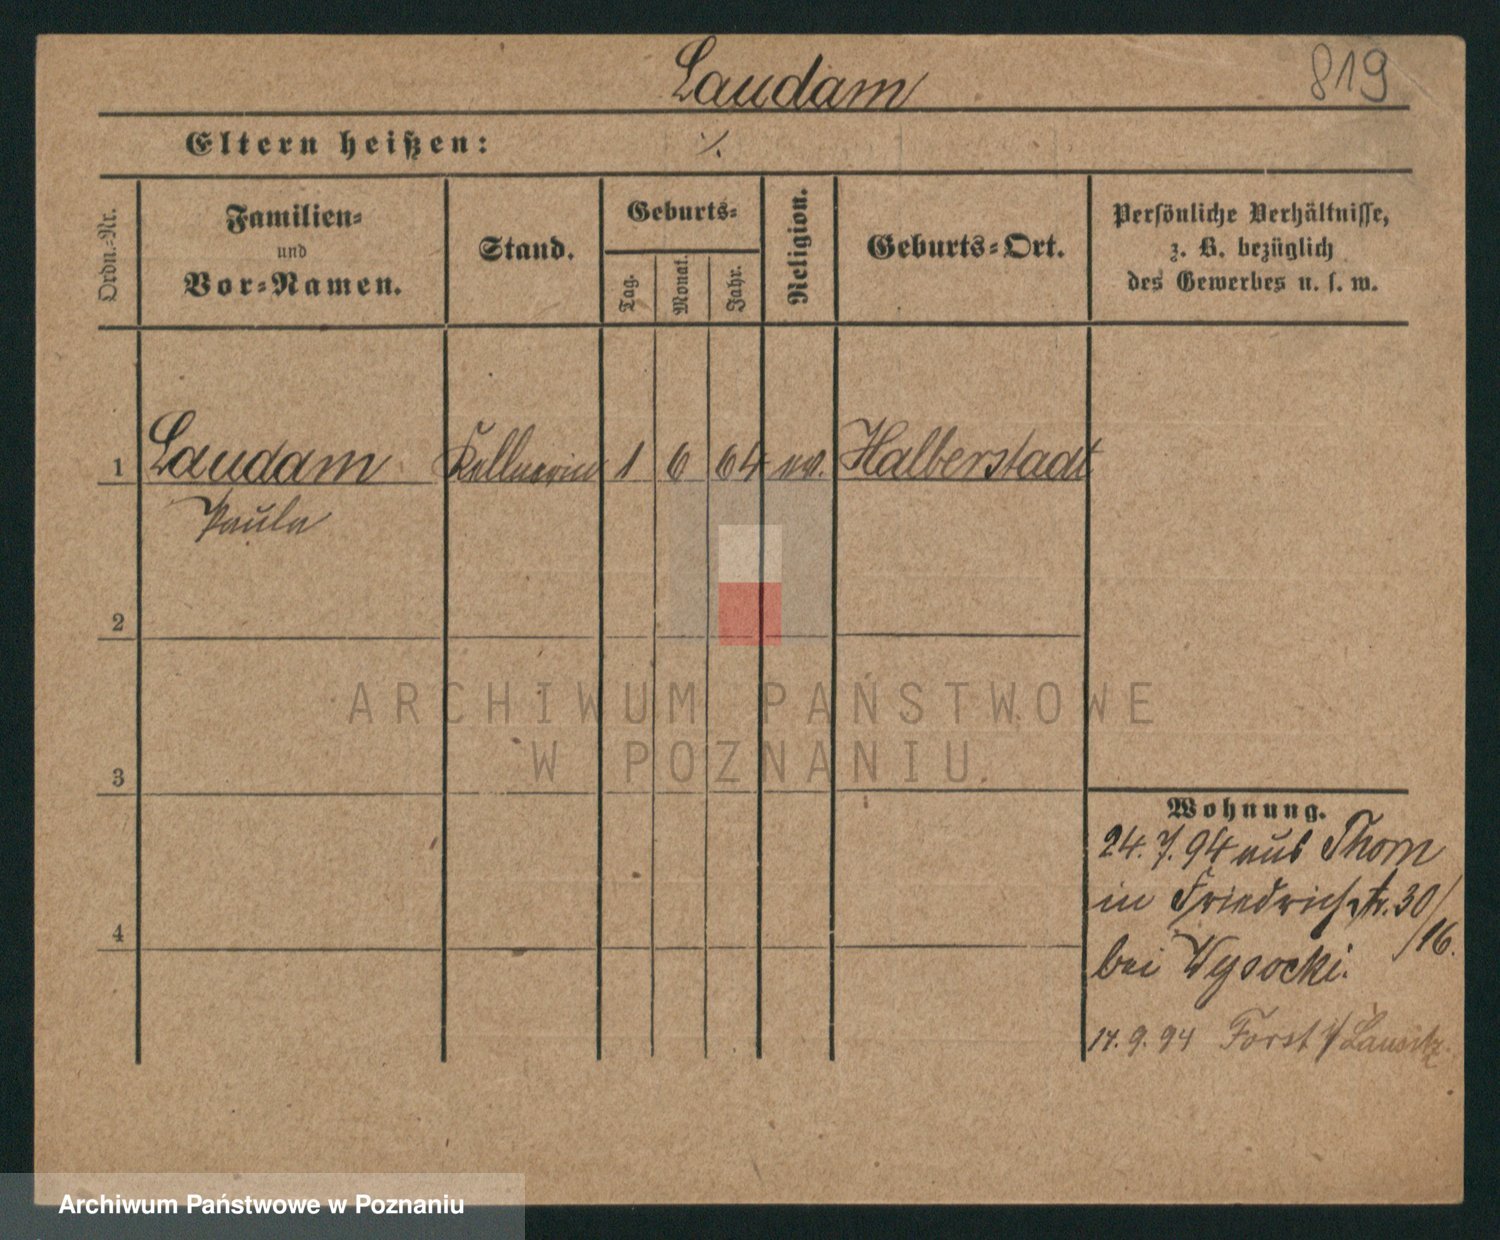 Laudam
819
Eltern heißen: ⁒
Ordn.-Nr.
Familien-
und
Vor-Namen.
Stand.
Geburts-
Tag.
Monat.
Jahr.
Religion.
Geburts-Ort.
Persönliche Verhältnisse,
z. B. bezüglich
des Gewerbes u. s. w.
1 Laudam Kellnerin 1 6 64 ev. Halberstadt
Paula
2
3
4
ARCHIWUM PAŃSTWOWE
W POZNANIU
Wohnung.
24. 7. 94 aus Thorn
in Friedrichstr. 30/
/16.
bei Wysocki.
14. 9. 94 Forst i/Lausitz.
Archiwum Państwowe w Poznaniu